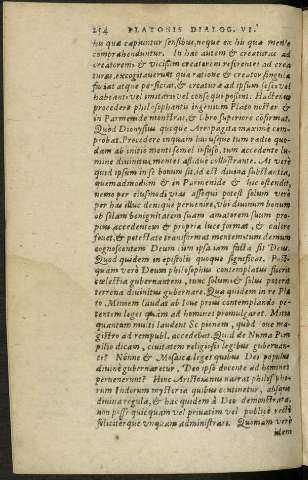 254 PLATONIS DIALOG. VI.
hu quæ capiuntur sensibus, neque ex hu quæ mente
comprehenduntur. In hac autem & creaturas ad
creatorem & vicissim creatorem referentes ad crea
turas, excogitauerunt qua ratione & creator singula
faciat atque perficiat, & creaturæ ad ipsum sese vel
habeant vel imitatu vel consequi possint. Hactenus
procedere philosophantis ingenium Plato noster &
in Parmenide monstrat, & libro superiore cōfirmat.
Quod Dionysius quoque Areopagita maximè com-
probat. Procedere inquam huiusque tum recto quo-
dam ab initio mentis sensu infuso, tum accedente lu-
mine diuinitus mentes assidue collustrante. At verò
quid ipsum in se bonum sit, id est diuina substantia,
quemadmodum & in Parmenide & hic ostendit,
nemo per eiusmodi vias assequi potest: solum verò
per has illuc denique peruenire, vbi diuinum bonum
ob solam benignitatem suam amatorem suum pro-
pius accedentem & propria luce format, & calore
fouet, & potestate transformat mentem: cum demum
cognoscentem Deum cum ipsa iam facta sit Deus.
Quod quidem in epistolis quoque significat. Post-
quam verò Deum philosophus contemplatus fuerit
cælestia gubernantem, tum solum & solus poterit
terrena diuinitus gubernare. Qua quidem in re Pla
to, Minoem laudat ab Ioue prius contemplando pe-
tentem leges quàm ad homines promulgaret. Mitto
quantum multi laudent Scipionem, quòd Ioue ma-
gistro ad rempubl. accedebat. Quid de Numa Pom
pilio dicam, ciuitatem religiosis legibus gubernan-
te? Nónne & Mosaica leges quibus Dei populus
diuinè gubernaretur, Deo ipso docente ad homines
peruenerunt? Hinc Aristoxenus narrat philosopho-
rum Indorum mysteria quibus continetur, absque
diuina regula, & hac quidem à Deo demonstrata,
non posse quicquam vel priuatim vel publicè rectè
fœliciterque vnquam administrari. Quoniam verò
idem